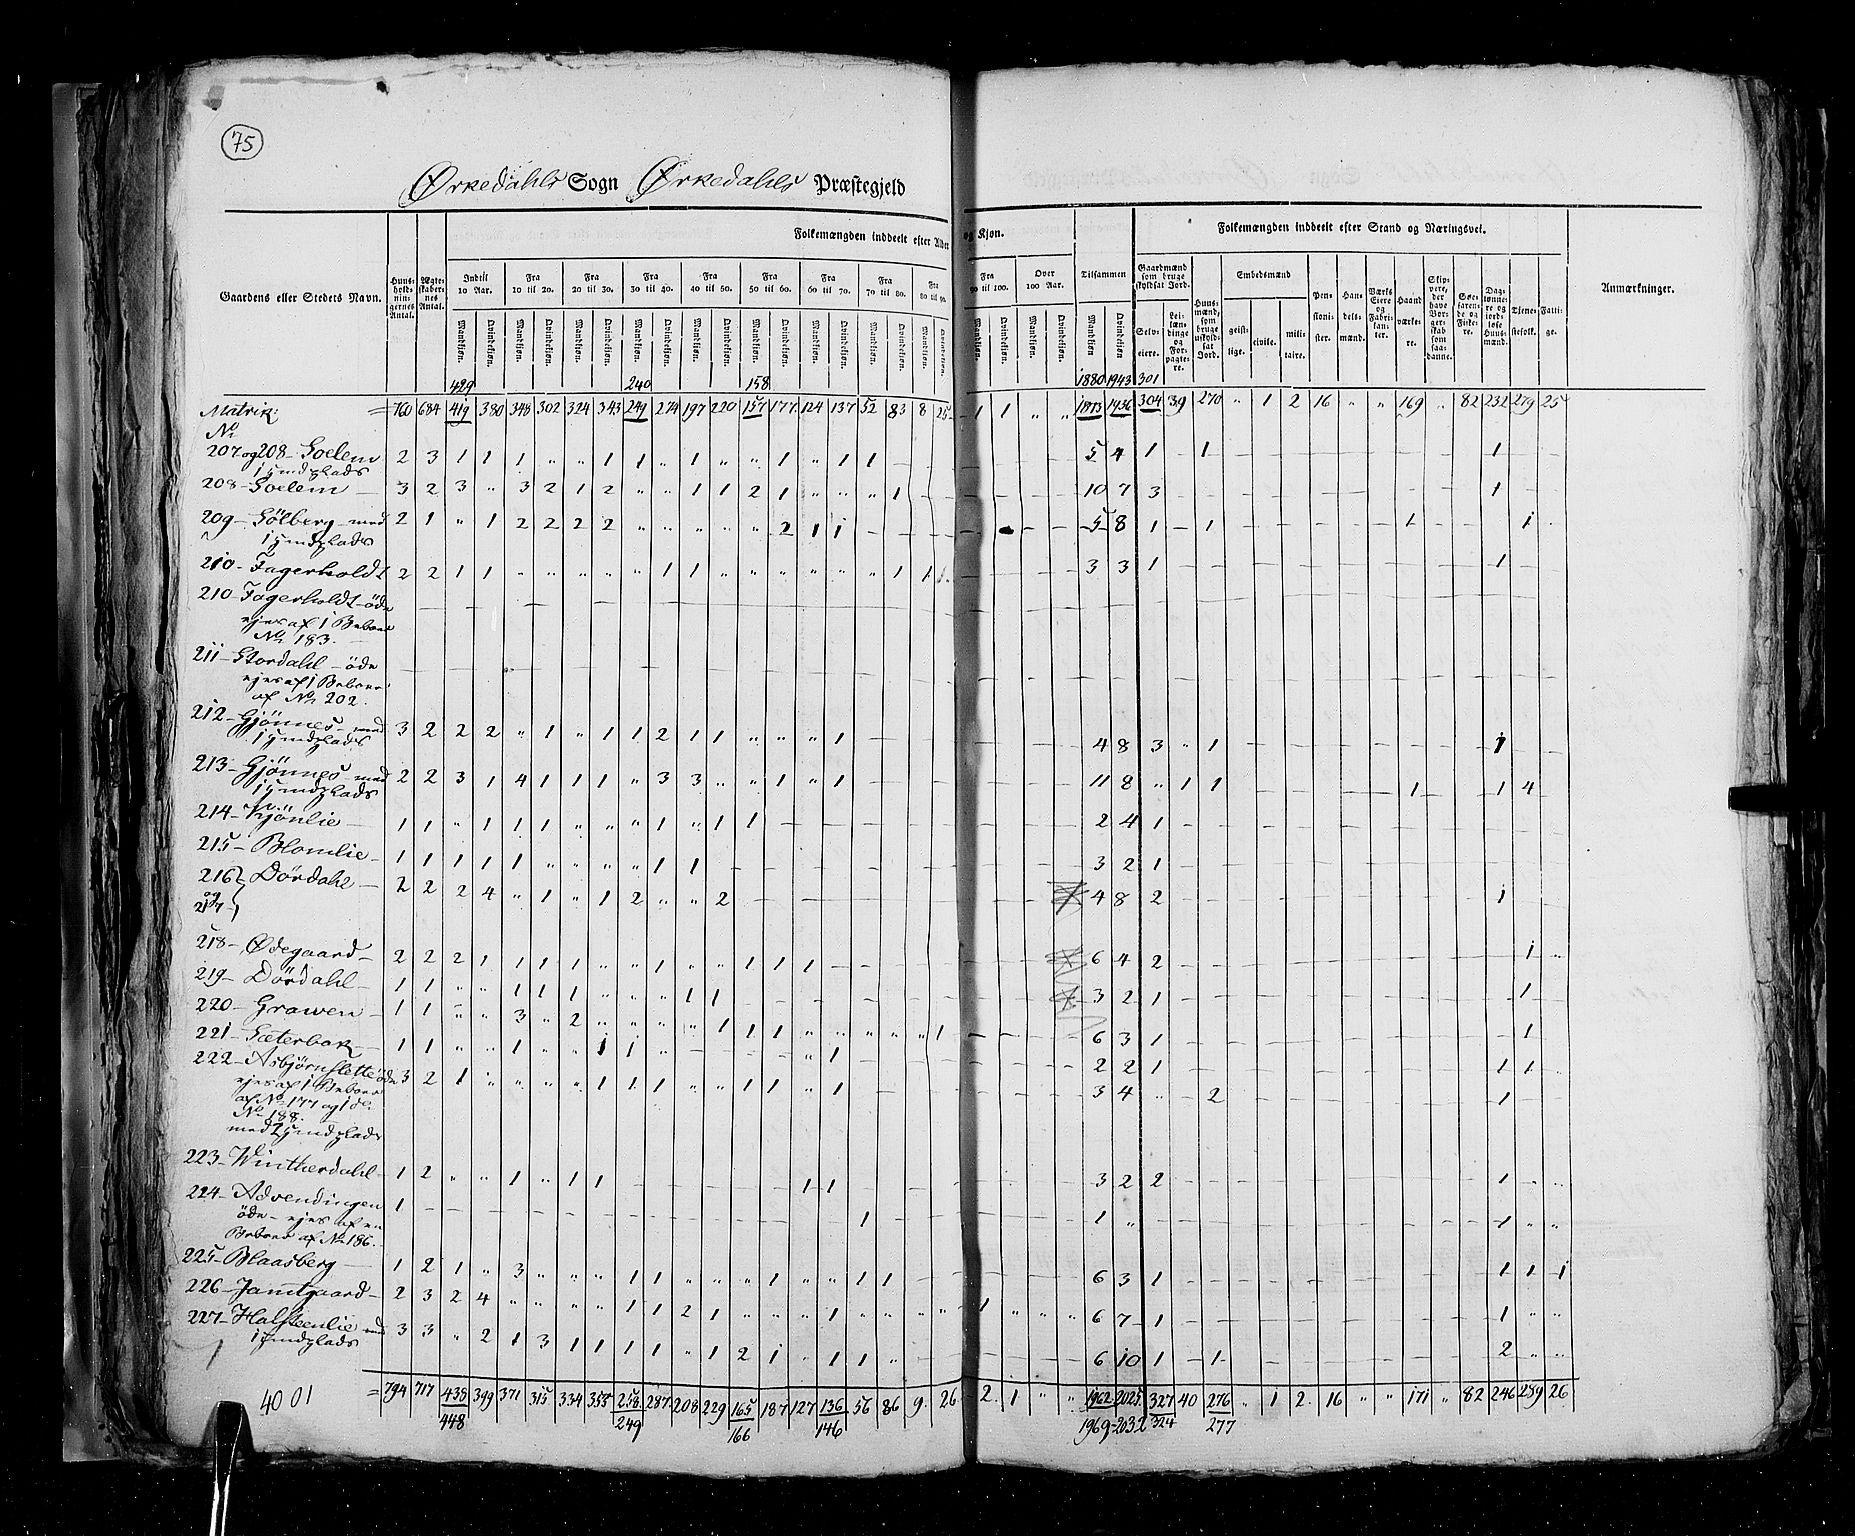 75
Ørkedahls Sogn Ørkedahls Præstegjeld
Gaardens eller Stedets Navn.
Huus-holdningernes Antal.
Ægteskabernes Antal.
Folkemængden inddeelt efter Alder og Kjøn.
Indtil 10 Aar.
Fra 10 til 20.
Fra 20 til 30.
Fra 30 til 40.
Fra 40 til 50.
Fra 50 til 60.
Fra 60 til 70.
Fra 70 til 80.
Fra 80 til 90.
Fra 90 til 100.
Over 100 Aar.
Tilsammen
Mandkjøn. Qvindekjøn.
Folkemængden inddeelt efter Stand og Næringsvei.
Gaardmænd som bruge skyldsat Jord.
Selveiere.
Leilændinge og Forpagtere.
Huusmænd, som bruge uskyldsat Jord.
Embedsmænd
geistlige. civile. militaire.
Pensionister.
Handelsmænd.
Værks Eiere og Fabrikanter.
Haandværkere.
Skippere, der have Borgerskab som saadanne.
Søefarende og Fiskere.
Daglønnere og jordløse Huusmænd.
Tjenestefolk.
Fattige.
Anmærkninger.
429 240 158 1880 1943 301
Matrik: = 760 684 419 380 348 302 324 343 249 274 197 220 157 177 124 137 52 83 8 25 1 1 „ „ 1873 1936 304 39 270 „ 1 2 16 „ „ 169 „ 82 232 279 25
No
207 og 208 - Soelem 2 3 1 1 1 „ „ 1 1 „ 1 „ „ 1 „ 1 1 5 4 1 - 1 1
1 Huusmdplads
208 - Soelem 3 2 3 „ 3 2 1 2 „ „ 1 1 2 1 „ „ „ 1 10 7 3 1
209 - Sölberg - med 2 1 „ 1 2 2 2 2 „ „ „ „ „ 2 1 1 5 8 1 - 1 1 1
210 - Fagerholdt 2 2 1 1 „ „ „ „ „ 1 1 „ „ „ „ „ „ 1 1 1 3 3 1 1
210 - Fagerholdt - öde
ejes af 1 Beboer
No 183.
211 - Stordahl - öde
ejes af 1 Beboer
af No 202.
212 - Gjönnes - med 3 2 2 2 „ 1 „ 1 1 2 1 1 „ „ „ 1 4 8 3 „ 1 1
213 - Gjönnes - med 2 2 3 1 4 1 1 1 „ 3 3 „ „ 1 „ 1 11 8 „ 1 1 1 1 4
214 - Kjönlie 1 1 „ 1 1 1 „ „ „ 1 „ 1 1 2 4 1
215 - Blomlie 1 1 1 1 1 „ „ „ „ 1 1 3 2 1
216 - Dördahl 2 2 2 4 „ 1 „ 1 2 „ „ 2 4 8 2 1
og
217
218 - Ødegaard 2 2 2 1 1 1 1 „ „ 1 „ „ 1 1 1 6 4 2 1 „
219 - Dördahl 1 1 „ „ 1 1 1 „ „ „ 1 1 3 2 1 1
220 - Grawen 1 1 „ „ 3 „ 2 „ „ „ „ 1 1 1 „ „ „ „ „ 1 6 3 1 1
221 - Sæterbak 1 1 „ „ 1 „ „ 1 1 „ „ 1 2 2 1 1 1
222 - Asbjörnslette öde 3 2 1 „ „ „ „ 1 1 1 „ „ 1 1 „ 1 3 4 „ 2 1
ejes af 1 Beboer
af No 177 og 1 do.
No 188.
223 - Wintherdahl 1 2 „ „ 1 „ 1 1 1 1 3 2 2 1 „ „
224 - Advendingen 1 1 1 „ 1 „ „
öde - ejes af en
Beboer af No 186.
225 - Blaasberg 1 2 1 „ 3 „ „ „ 1 1 „ „ „ 1 „ „ 1 1 6 3 1 1 1 1
226 - Jamtgaard 2 3 2 4 „ „ „ „ 1 1 2 1 „ „ „ 1 „ „ „ „ 1 „ „ „ 6 7 1 1 „ „
227 - Halsteenlie med 3 3 „ 2 1 3 1 1 1 1 „ 1 2 1 „ 1 1 „ 6 10 1 - 1 2 „ „
4001 = 794 717 438 399 371 315 334 355 258 287 208 229 165 187 127 136 56 86 9. 26 2. 1 „ „ 1962 2025 327 40 276 „ 1 2. 16 „ „ 171 „ 82 246 289 26
448 249 166 146 1969 2032 324 277